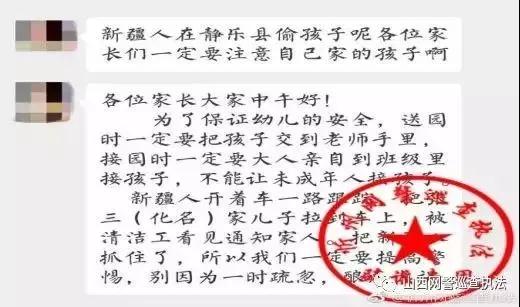 新疆人在静乐县偷孩子呢各位家
长们一定要注意自己家的孩子啊
各位家长大家中午好!
为了保证幼儿的安全，送园
时一定要把孩子交到老师手里，
接园时一定要大人亲自到班级里
接孩子，不能让未成年人接孩子。
新疆人开着车一路跟踪 把
三（化名）家儿子拉到车上，被
清洁工看见通知家人 把新
抓住了，所以我们一定要提高警
惕，别因为一时疏忽，酿
查执法
山西网警巡查执法